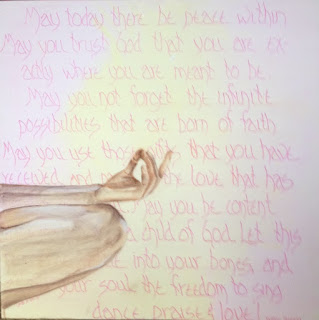 May today there be peace within
May you trust God that you are ex-
actly where you are meant to be.
May you not forget the infinite
possibilities that are born of faith
May you use those that you have
received and the love that has
May you be content
a child of God. Let this
into your bones, and
your soul the freedom to sing
dance, praise & love!